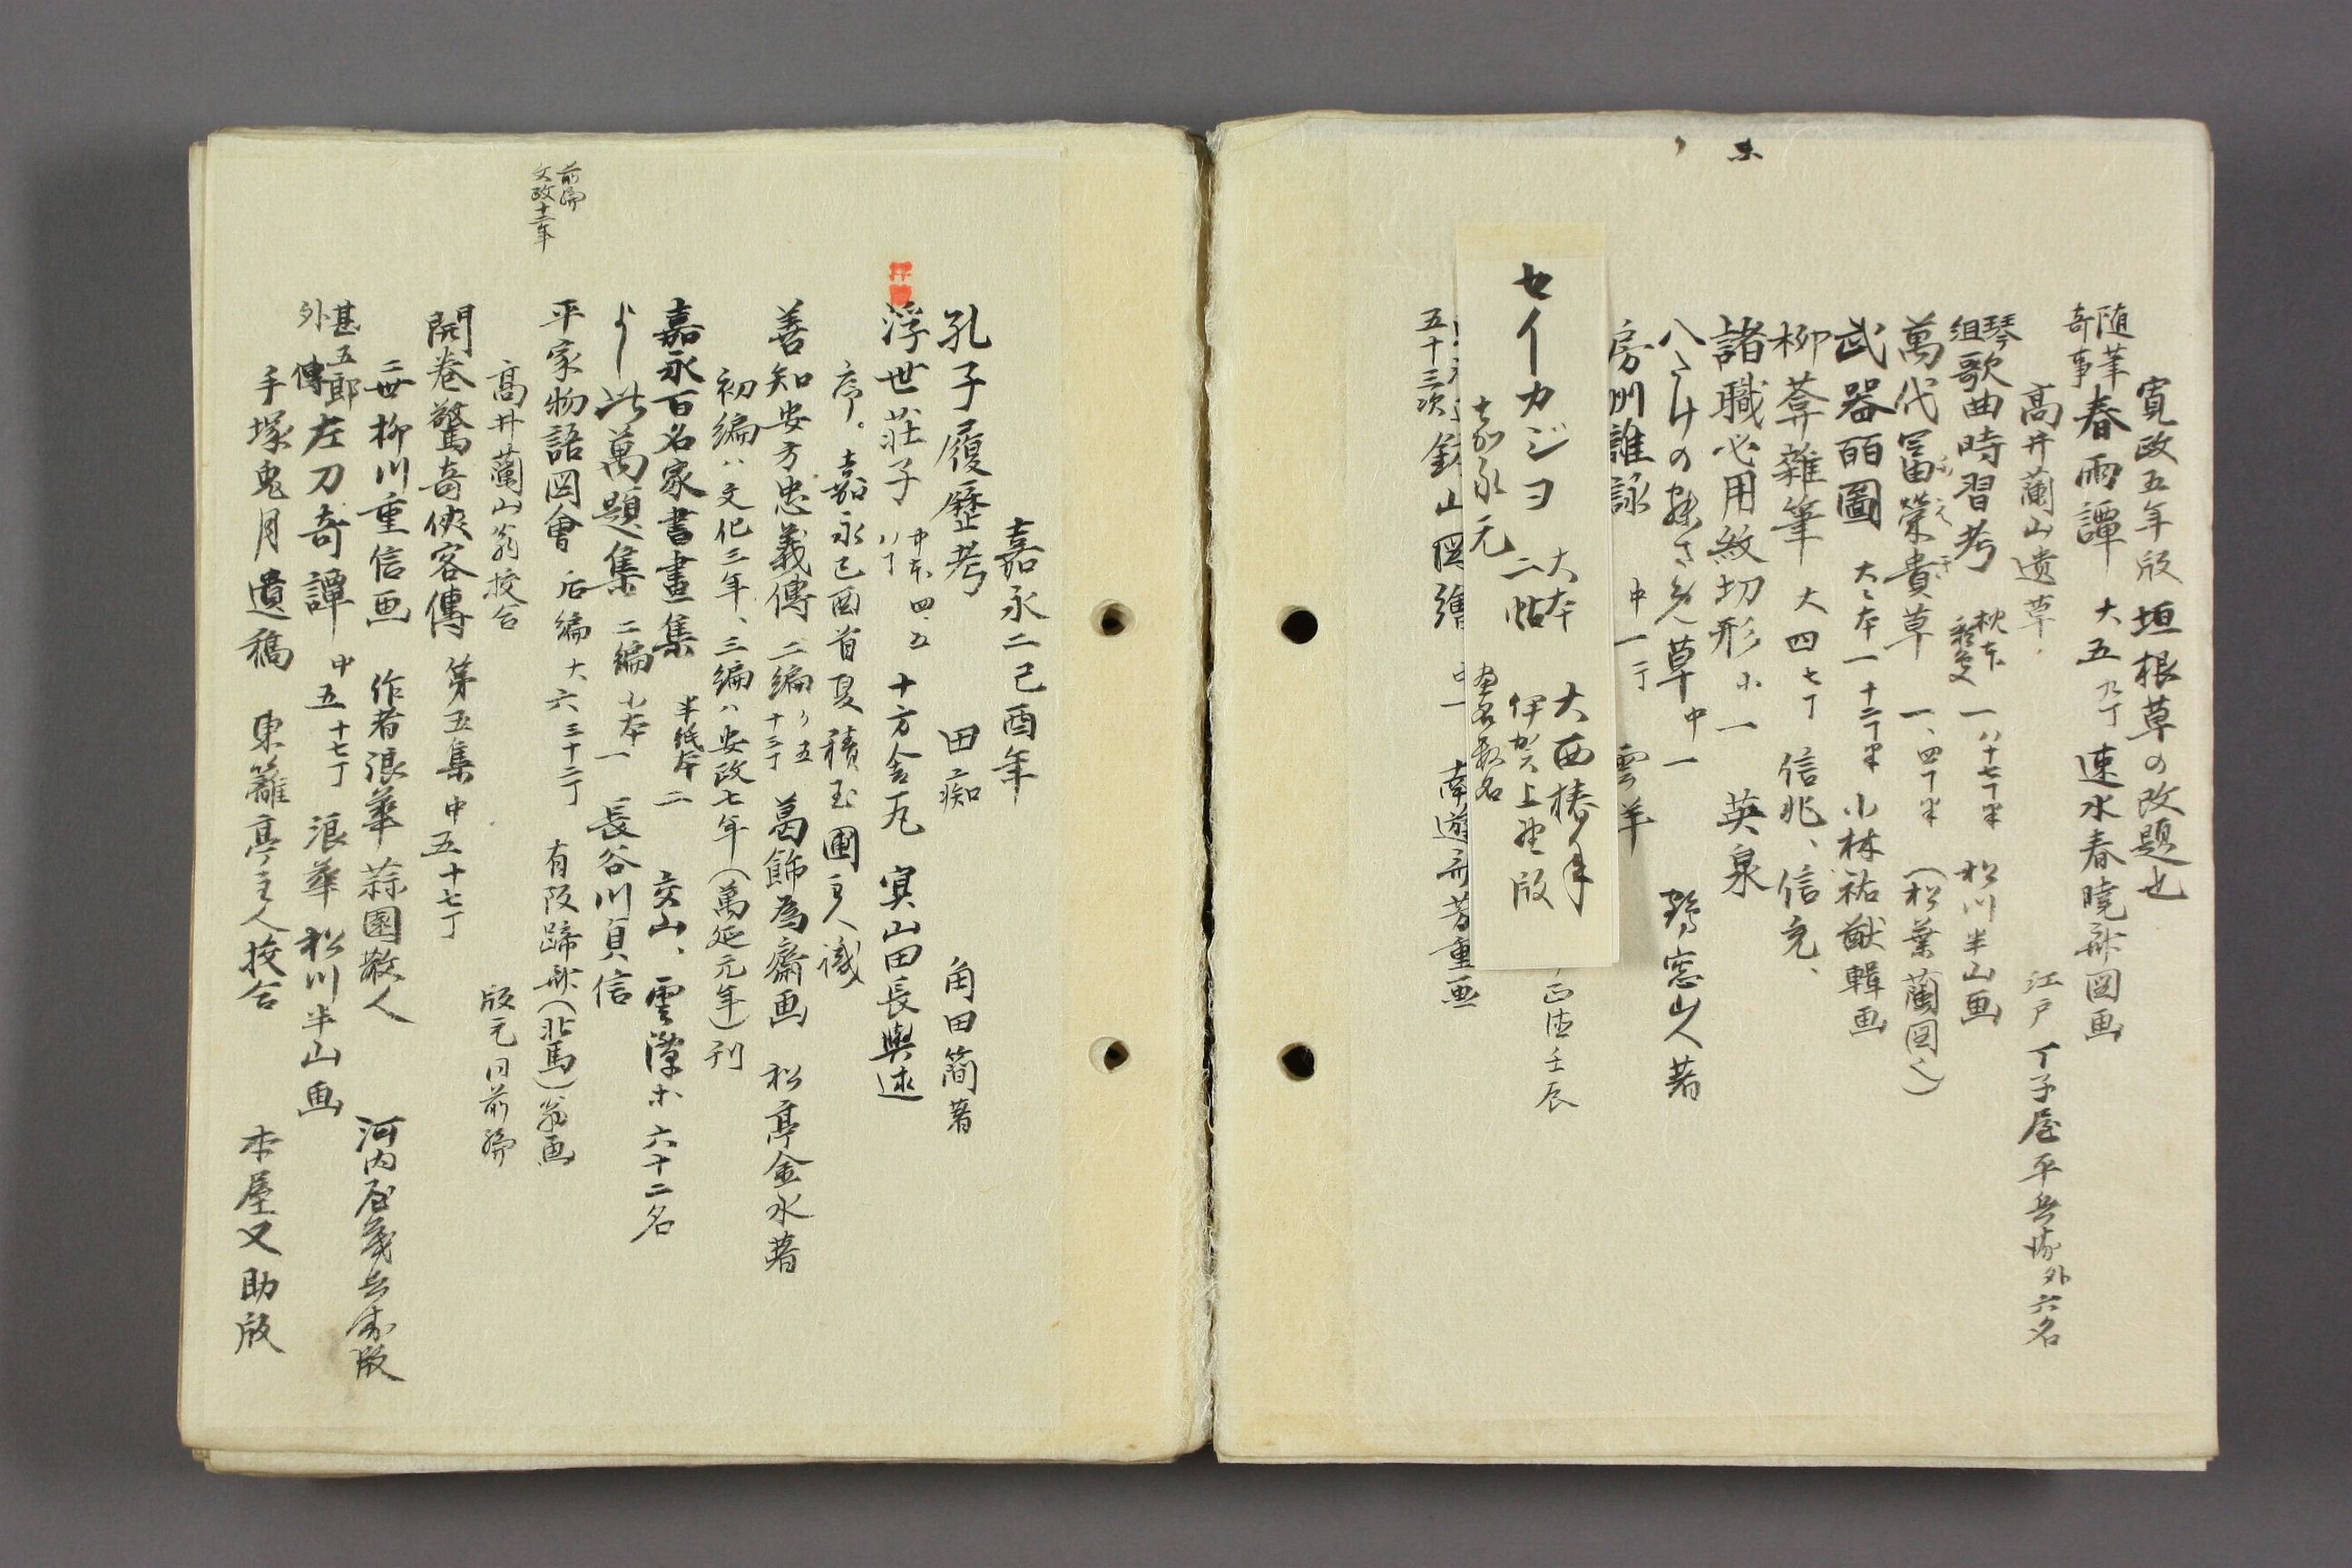 寛政五年版 垣根草の改題也
随筆奇事 春雨譚 大五 九丁 速水春暁斎図画
高井蘭山遺草 江戸 丁子屋平兵衛外六名
琴組 歌曲時習考 枕本 一 八十七丁半 松川半山画
萬代冨栄貴草 一、四丁半 (松葉蘭図)
武器百圖 大々本一 十二丁半 小林祐猷輯画
柳荅雜筆 大四 七丁 信兆、信充、
諸職必用紋切形 小一 英泉
草 中一 鶏窓山人著
房州誰詠 中一丁 雲羊
セイカジヨ 大本 二帖 大西椿年
嘉永元 伊賀上野版
画名数名
正徳壬辰
五十三次 鉢山図繪 一 南遊斎芳重画
嘉永二己酉年
孔子履歷考 田痴 角田簡著
浮世莊子 中本四・五 八丁 十方舎一丸 寞山田長與述
序。嘉永己酉首夏 積玉圃主人識
善知安方忠義傳 二編 五 十三丁 葛飾為齋画 松亭金水著
初編ハ文化三年、三編ハ安政七年(萬延元年)刊
嘉永百名家書畫集 半紙本二 交山、雲潭ホ 六十二名
よし此萬題集 二編 小本一 長谷川貞信
平家物語図會 后編 大六 三十二丁 有阪蹄斎(北馬)翁画
前編 文政十二年
高井蘭山翁挍合 版元同前編
開巻驚奇侠客傳 第五集 中五 十七丁
二世柳川重信画 作者浪華 蒜園散人 河内屋茂兵衛版
甚五郎外傳 左刀奇譚 中五 十七丁 浪華 松川半山画
手塚兎月遺稿 東籬亭主人挍合 本屋又助版